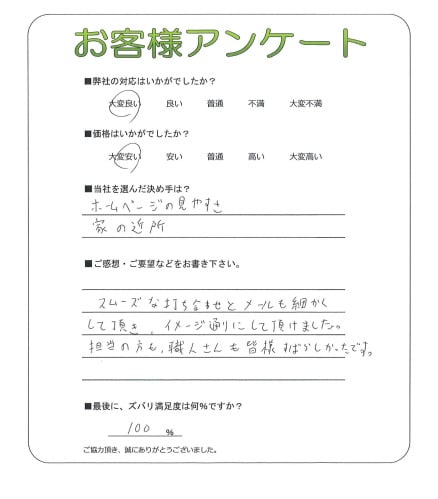 お客様アンケート
■弊社の対応はいかがでしたか?
大変良い 良い 普通 不満 大変不満
■価格はいかがでしたか?
大変安い 安い 普通 高い 大変高い
■当社を選んだ決め手は?
ホームページの見やすさ
家の近所
■ご感想・ご要望などをお書き下さい。
スムーズな打ち合わせとメールも細かく
して頂き、イメージ通りにして頂けました。
担当の方も、職人さんも皆様すばらしかったです。
■最後に、ズバリ満足度は何%ですか?
100 %
ご協力頂き、誠にありがとうございました。